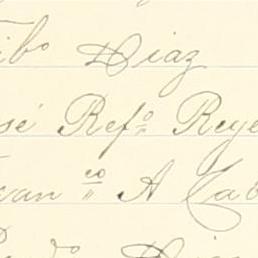 ibo Diaz
sé Refo Reye
van co A Cab